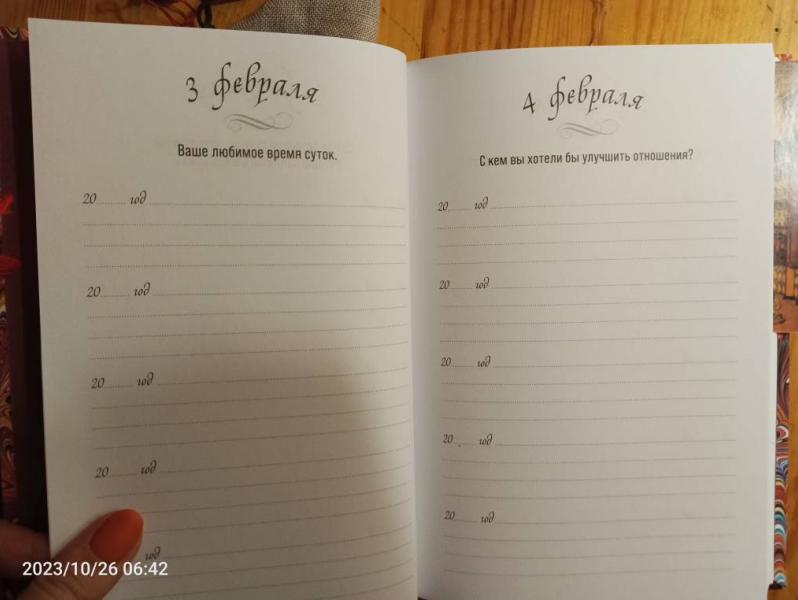 3 февраля
Ваше любимое время суток.
20 год
20 год
20 год
20 год
год
4 февраля
С кем вы хотели бы улучшить отношения?
20 год
20 год
20 год
20 год
20 год
2023/10/26 06:42